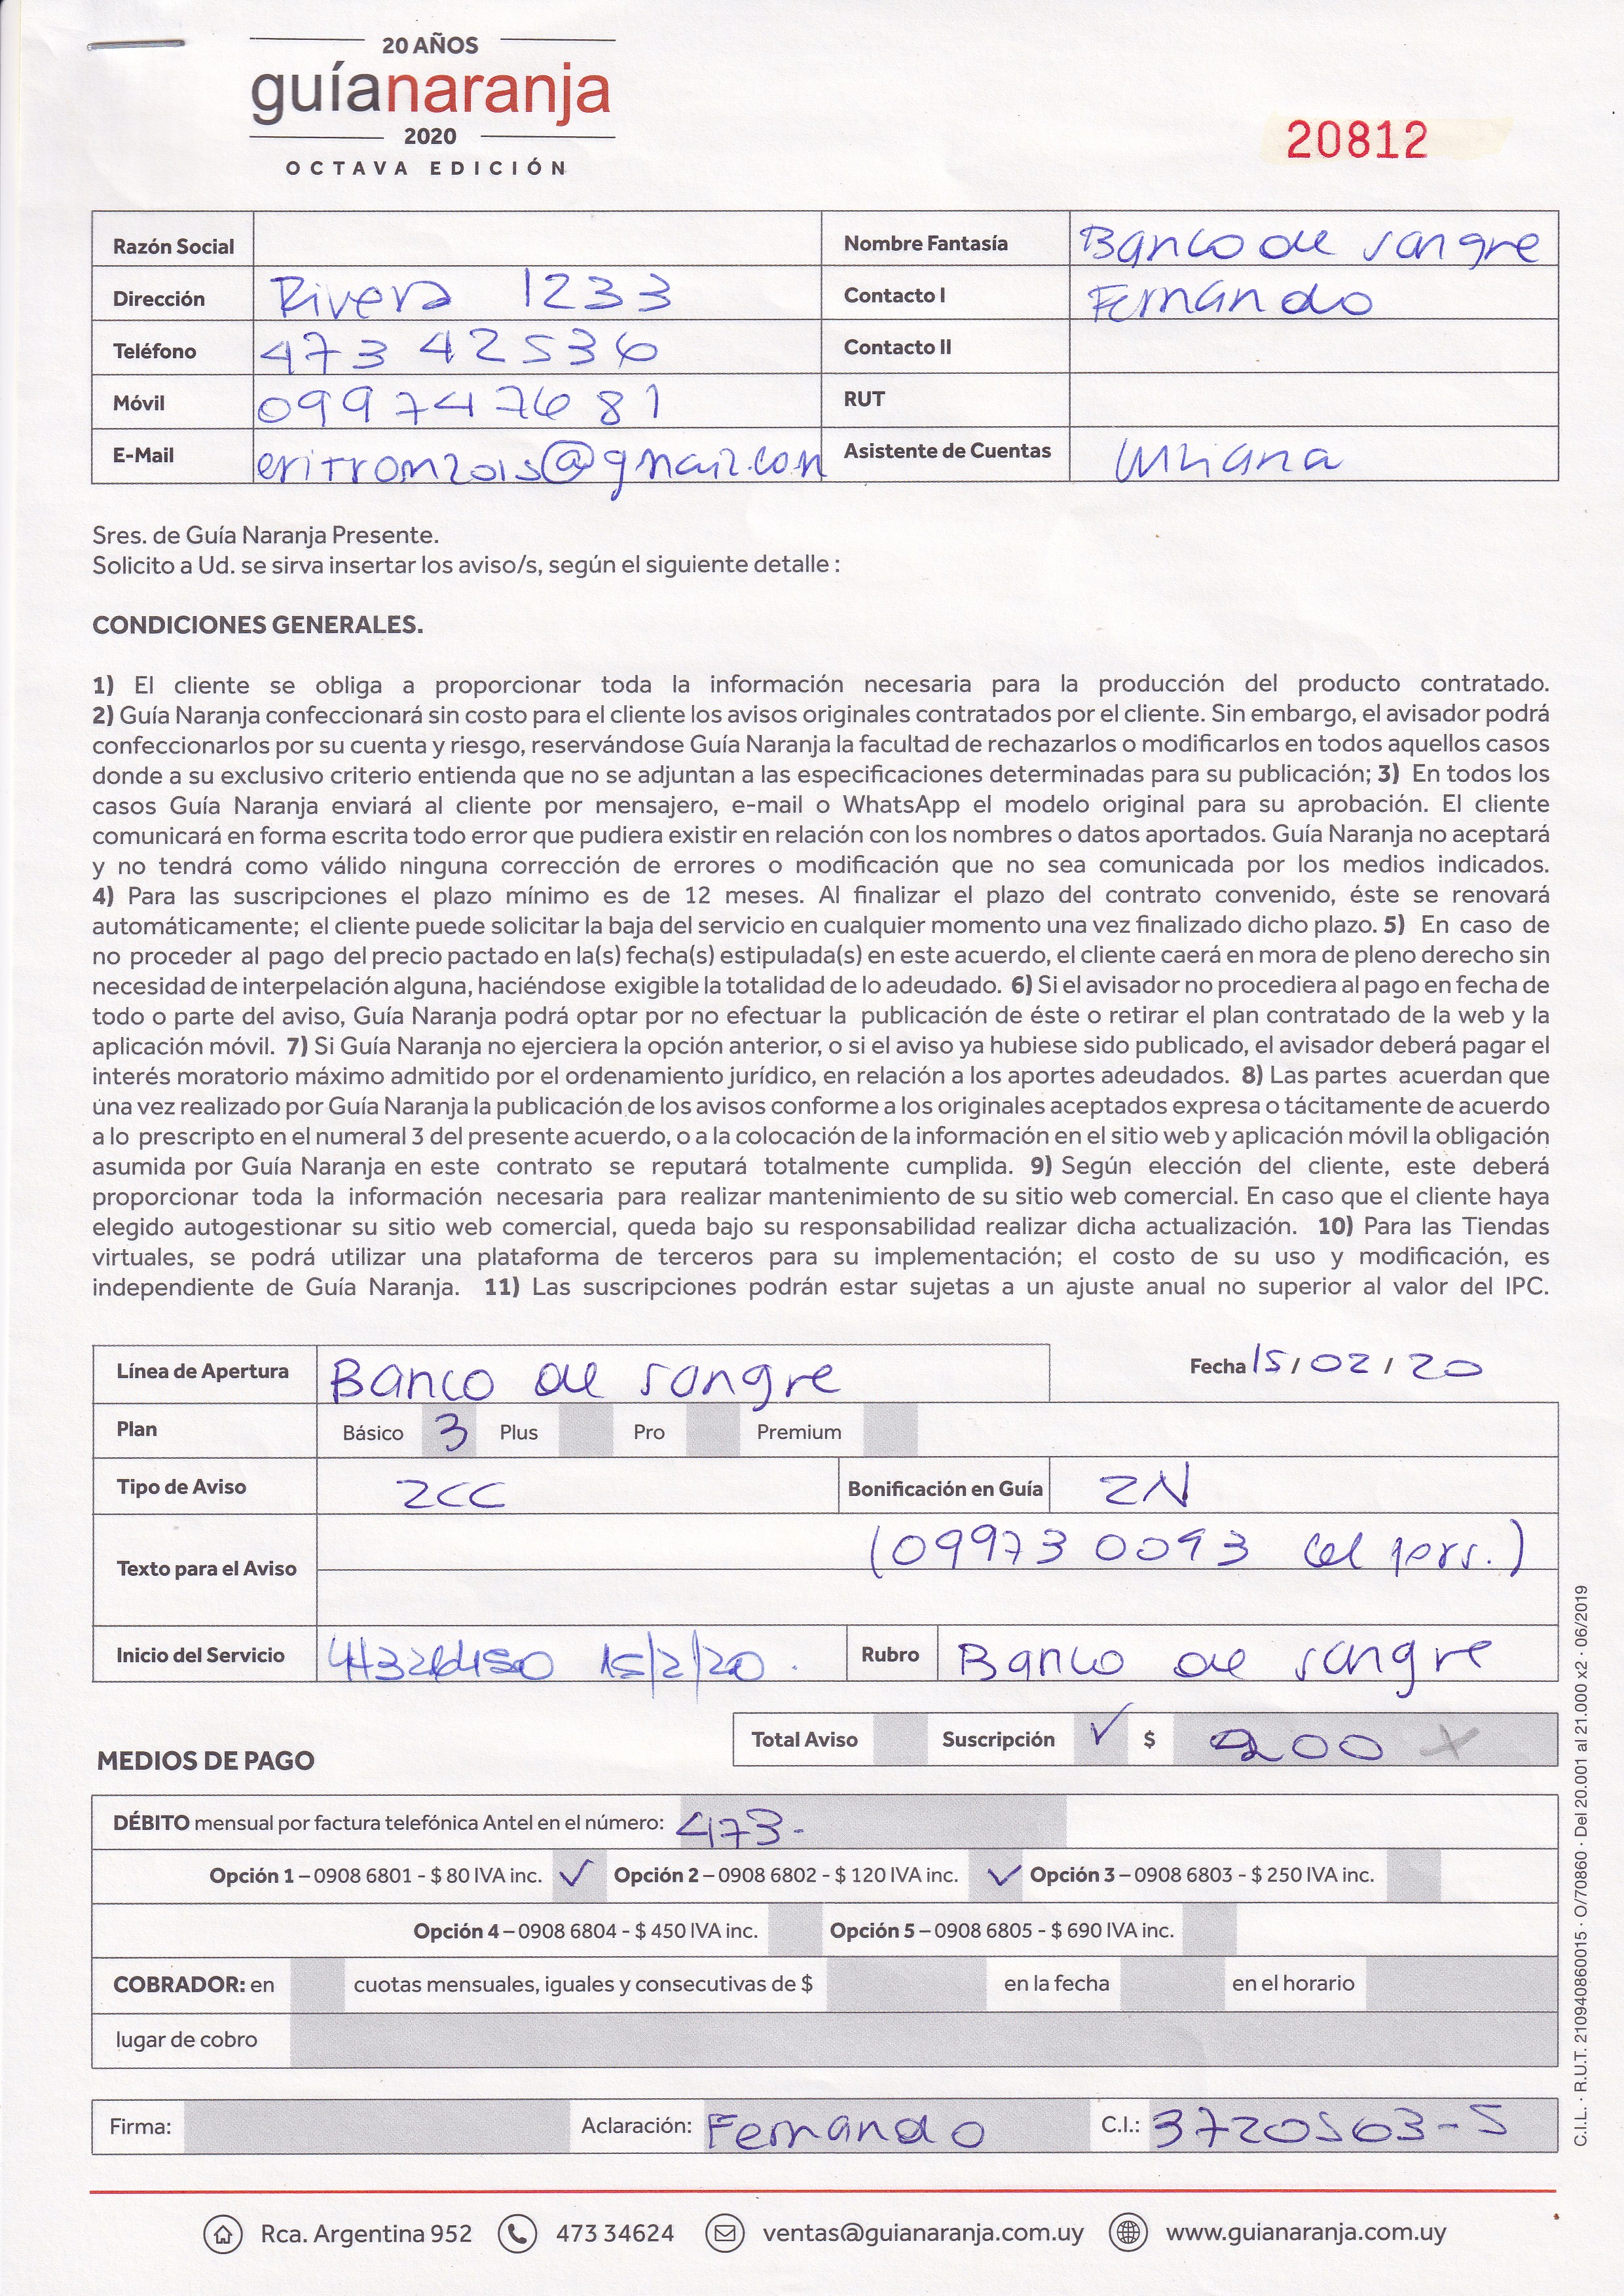 20 AÑOS
guíanaranja
2020
OCTAVA EDICIÓN
20812
Razón Social Nombre Fantasía Banco de sangre
Dirección Rivera 1233 Contacto I Fernando
Teléfono 473 42536 Contacto II
Móvil 099747681 RUT
E-Mail Asistente de Cuentas
Sres. de Guía Naranja Presente.
Solicito a Ud. se sirva insertar los aviso/s, según el siguiente detalle :
CONDICIONES GENERALES.
1) El cliente se obliga a proporcionar toda la información necesaria para la producción del producto contratado.
2) Guía Naranja confeccionará sin costo para el cliente los avisos originales contratados por el cliente. Sin embargo, el avisador podrá
confeccionarlos por su cuenta y riesgo, reservándose Guía Naranja la facultad de rechazarlos o modificarlos en todos aquellos casos
donde a su exclusivo criterio entienda que no se adjuntan a las especificaciones determinadas para su publicación; 3) En todos los
casos Guía Naranja enviará al cliente por mensajero, e-mail o WhatsApp el modelo original para su aprobación. El cliente
comunicará en forma escrita todo error que pudiera existir en relación con los nombres o datos aportados. Guía Naranja no aceptará
y no tendrá como válido ninguna corrección de errores o modificación que no sea comunicada por los medios indicados.
4) Para las suscripciones el plazo mínimo es de 12 meses. Al finalizar el plazo del contrato convenido, éste se renovará
automáticamente; el cliente puede solicitar la baja del servicio en cualquier momento una vez finalizado dicho plazo. 5) En caso de
no proceder al pago del precio pactado en la(s) fecha(s) estipulada(s) en este acuerdo, el cliente caerá en mora de pleno derecho sin
necesidad de interpelación alguna, haciéndose exigible la totalidad de lo adeudado. 6) Si el avisador no procediera al pago en fecha de
todo o parte del aviso, Guía Naranja podrá optar por no efectuar la publicación de éste o retirar el plan contratado de la web y la
aplicación móvil. 7) Si Guía Naranja no ejerciera la opción anterior, o si el aviso ya hubiese sido publicado, el avisador deberá pagar el
interés moratorio máximo admitido por el ordenamiento jurídico, en relación a los aportes adeudados. 8) Las partes acuerdan que
una vez realizado por Guía Naranja la publicación de los avisos conforme a los originales aceptados expresa o tácitamente de acuerdo
a lo prescripto en el numeral 3 del presente acuerdo, o a la colocación de la información en el sitio web y aplicación móvil la obligación
asumida por Guía Naranja en este contrato se reputará totalmente cumplida. 9) Según elección del cliente, este deberá
proporcionar toda la información necesaria para realizar mantenimiento de su sitio web comercial. En caso que el cliente haya
elegido autogestionar su sitio web comercial, queda bajo su responsabilidad realizar dicha actualización. 10) Para las Tiendas
virtuales, se podrá utilizar una plataforma de terceros para su implementación; el costo de su uso y modificación, es
independiente de Guía Naranja. 11) Las suscripciones podrán estar sujetas a un ajuste anual no superior al valor del IPC.
Línea de Apertura Banco de sangre Fecha 15 / 02 / 20
Plan Básico 3 Plus Pro Premium
Tipo de Aviso 2CC Bonificación en Guía 2N
Texto para el Aviso (09973 0093 Cel pers.)
Inicio del Servicio 15/2/20. Rubro Banco de sangre
Total Aviso Suscripción ✓ $ 200
MEDIOS DE PAGO
DÉBITO mensual por factura telefónica Antel en el número: 473-
Opción 1 – 0908 6801 - $ 80 IVA inc. ✓ Opción 2 – 0908 6802 - $ 120 IVA inc. ✓ Opción 3 – 0908 6803 - $ 250 IVA inc.
Opción 4 – 0908 6804 - $ 450 IVA inc. Opción 5 – 0908 6805 - $ 690 IVA inc.
COBRADOR: en cuotas mensuales, iguales y consecutivas de $ en la fecha en el horario
lugar de cobro
Firma: Aclaración: Fernando C.I.: 3720563-5
Rca. Argentina 952 473 34624 ventas@guianaranja.com.uy www.guianaranja.com.uy
C.I.L. · R.U.T. 210940860015 · O/70860 · Del 20.001 al 21.000 x2 · 06/2019